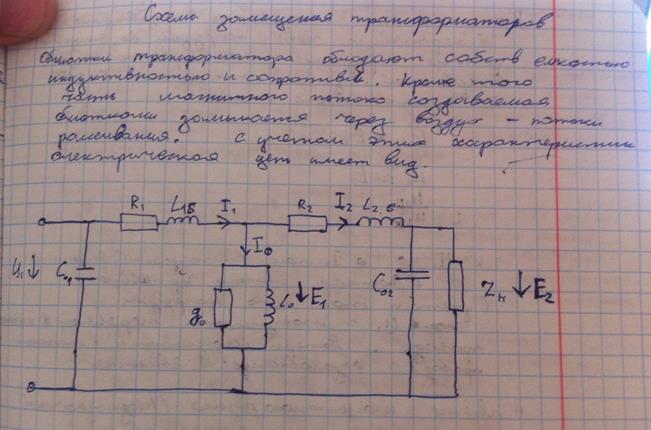 Схемы замещения трансформаторов
Обмотки трансформатора обладают собств емкостью
индуктивностью и сопротивл. Кроме того
часть магнитного потока создаваемая
обмотками замыкается через воздух – потоки
рассеивания. С учетом этих характеристик
электрическая цепь имеет вид.
R₁ L₁s I₁ R₂ I₂ L₂s
I₀
U₁ C₀₁ g₀ L₀ E₁ C₀₂ Zн E₂